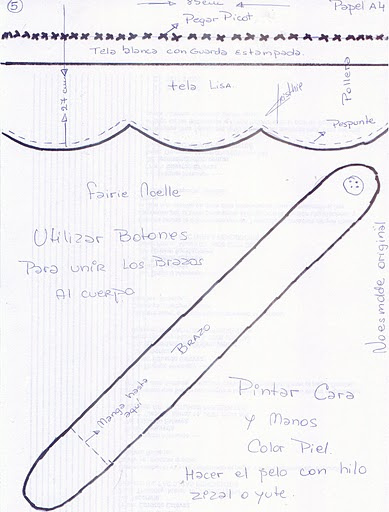 5
85cm
Papel A4
Pegar Picot
Tela blanca con Guarda Estampada.
27 cm
tela Lisa
Pollera
Pespunte
Fairie Noelle
Utilizar Botones
Para unir los Brazos
Al cuerpo
No es molde original
BRAZO
Manga hasta
aquí
Pintar Cara
y Manos
Color Piel.
Hacer el pelo con hilo
zezal o yute.